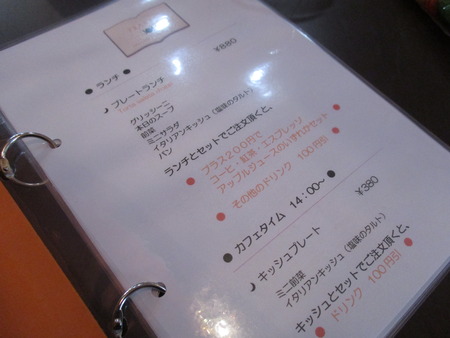 ● ランチ ●
プレートランチ ¥880
グリッシーニ
本日のスープ
前菜
ミニサラダ
イタリアンキッシュ（塩味のタルト）
パン
ランチとセットでご注文頂くと、
● プラス200円で ●
コーヒー・紅茶・エスプレッソ
アップルジュースのいずれかセット
● その他のドリンク 100円引 ●
● カフェタイム 14:00~ ●
キッシュプレート ¥380
ミニ前菜
イタリアンキッシュ（塩味のタルト）
キッシュとセットでご注文頂くと、
● ドリンク 100円引 ●